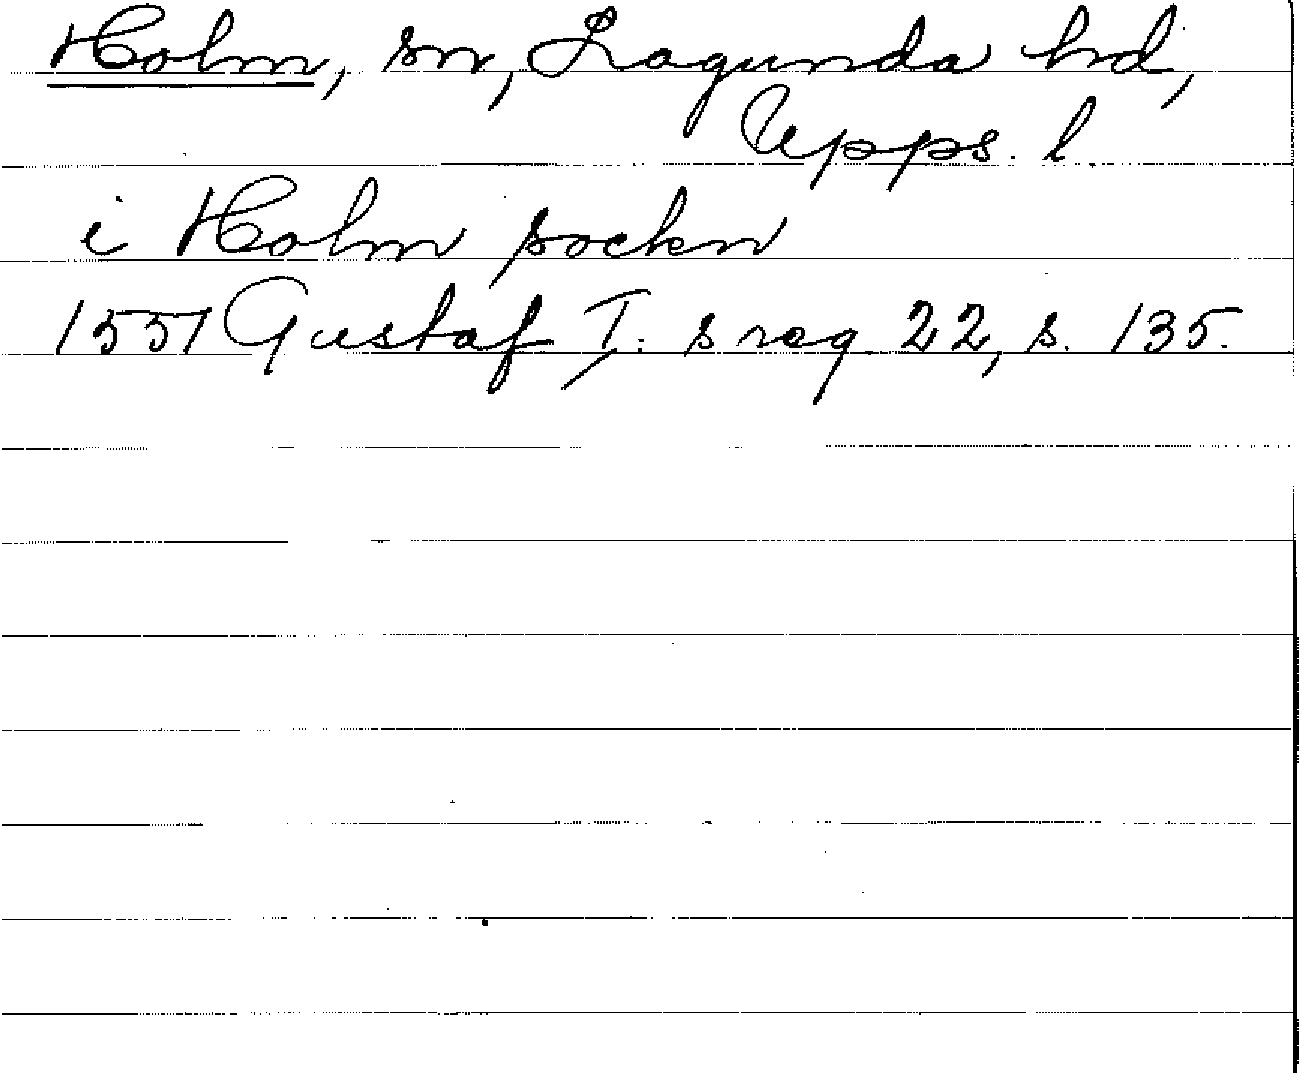 Holm, sn, Lagunda hd,
Upps. l.
i Holm sockn
1551 Gustaf I: s reg. 22, s. 135.